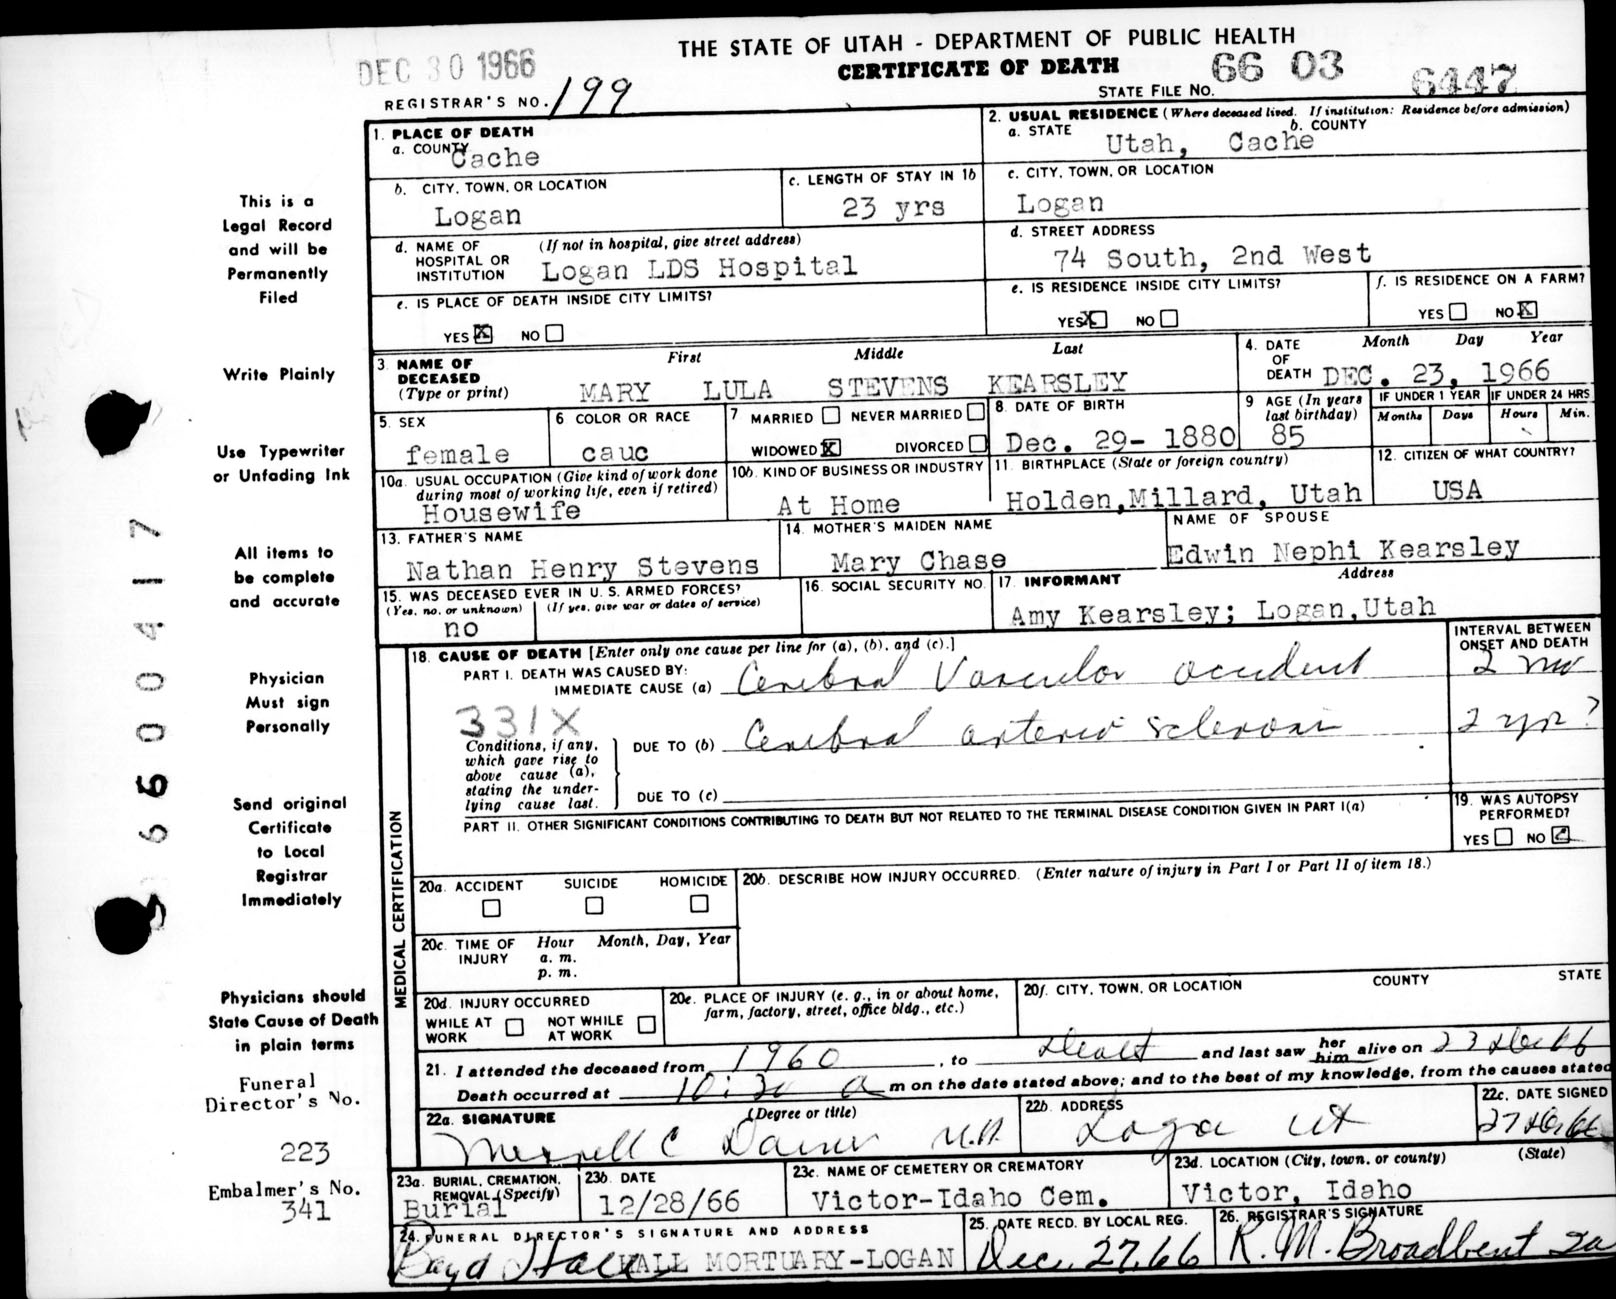 THE STATE OF UTAH - DEPARTMENT OF PUBLIC HEALTH
CERTIFICATE OF DEATH
DEC 30 1966
REGISTRAR'S NO. 199
STATE FILE NO. 66 03 6447
1. PLACE OF DEATH
a. COUNTY
Cache
2. USUAL RESIDENCE (Where deceased lived. If institution: Residence before admission)
a. STATE b. COUNTY
Utah, Cache
b. CITY, TOWN, OR LOCATION
Logan
c. LENGTH OF STAY IN 1b
23 yrs
c. CITY, TOWN, OR LOCATION
Logan
d. NAME OF HOSPITAL OR INSTITUTION (If not in hospital, give street address)
Logan LDS Hospital
d. STREET ADDRESS
74 South, 2nd West
e. IS PLACE OF DEATH INSIDE CITY LIMITS?
YES X NO
e. IS RESIDENCE INSIDE CITY LIMITS?
YES X NO
f. IS RESIDENCE ON A FARM?
YES NO X
3. NAME OF DECEASED (Type or print)
First Middle Last
MARY LULA STEVENS KEARSLEY
4. DATE OF DEATH Month Day Year
DEC. 23, 1966
5. SEX
female
6 COLOR OR RACE
cauc
7 MARRIED NEVER MARRIED
WIDOWED X DIVORCED
8. DATE OF BIRTH
Dec. 29- 1880
9 AGE (In years last birthday)
85
IF UNDER 1 YEAR
Months Days
IF UNDER 24 HRS
Hours Min.
10a. USUAL OCCUPATION (Give kind of work done during most of working life, even if retired)
Housewife
10b. KIND OF BUSINESS OR INDUSTRY
At Home
11. BIRTHPLACE (State or foreign country)
Holden,Millard, Utah
12. CITIZEN OF WHAT COUNTRY?
USA
13. FATHER'S NAME
Nathan Henry Stevens
14. MOTHER'S MAIDEN NAME
Mary Chase
NAME OF SPOUSE
Edwin Nephi Kearsley
15. WAS DECEASED EVER IN U.S. ARMED FORCES?
(Yes, no, or unknown) (If yes, give war or dates of service)
no
16. SOCIAL SECURITY NO.
17. INFORMANT Address
Amy Kearsley; Logan,Utah
18. CAUSE OF DEATH [Enter only one cause per line for (a), (b), and (c).]
INTERVAL BETWEEN ONSET AND DEATH
PART I. DEATH WAS CAUSED BY:
IMMEDIATE CAUSE (a) Cerebral Vascular accident 2 mo
331X
Conditions, if any, which gave rise to above cause (a), stating the underlying cause last.
DUE TO (b) Cerebral arterio sclerosis 2 yr?
DUE TO (c)
PART II. OTHER SIGNIFICANT CONDITIONS CONTRIBUTING TO DEATH BUT NOT RELATED TO THE TERMINAL DISEASE CONDITION GIVEN IN PART I(a)
19. WAS AUTOPSY PERFORMED?
YES NO
MEDICAL CERTIFICATION
20a. ACCIDENT SUICIDE HOMICIDE
20b. DESCRIBE HOW INJURY OCCURRED. (Enter nature of injury in Part I or Part II of item 18.)
20c. TIME OF INJURY Hour Month, Day, Year
a. m.
p. m.
20d. INJURY OCCURRED
WHILE AT WORK NOT WHILE AT WORK
20e. PLACE OF INJURY (e. g., in or about home, farm, factory, street, office bldg., etc.)
20f. CITY, TOWN, OR LOCATION COUNTY STATE
21. I attended the deceased from 1960, to Death and last saw her him alive on 23 Dec 66
Death occurred at 10:30 a m on the date stated above; and to the best of my knowledge, from the causes stated
22a. SIGNATURE (Degree or title)
Merrell C Daines M.D.
22b. ADDRESS
Logan Ut
22c. DATE SIGNED
27 Dec 66
23a. BURIAL, CREMATION, REMOVAL (Specify)
Burial
23b DATE
12/28/66
23c. NAME OF CEMETERY OR CREMATORY
Victor-Idaho Cem.
23d. LOCATION (City, town, or county) (State)
Victor, Idaho
24. FUNERAL DIRECTOR'S SIGNATURE AND ADDRESS
Boyd Hall HALL MORTUARY-LOGAN
25. DATE RECD. BY LOCAL REG.
Dec. 27, 66
26. REGISTRAR'S SIGNATURE
R. M. Broadbent
This is a
Legal Record
and will be
Permanently
Filed
Write Plainly
Use Typewriter
or Unfading Ink
All items to
be complete
and accurate
Physician
Must sign
Personally
Send original
Certificate
to Local
Registrar
Immediately
Physicians should
State Cause of Death
in plain terms
Funeral
Director's No.
223
Embalmer's No.
341
6600417